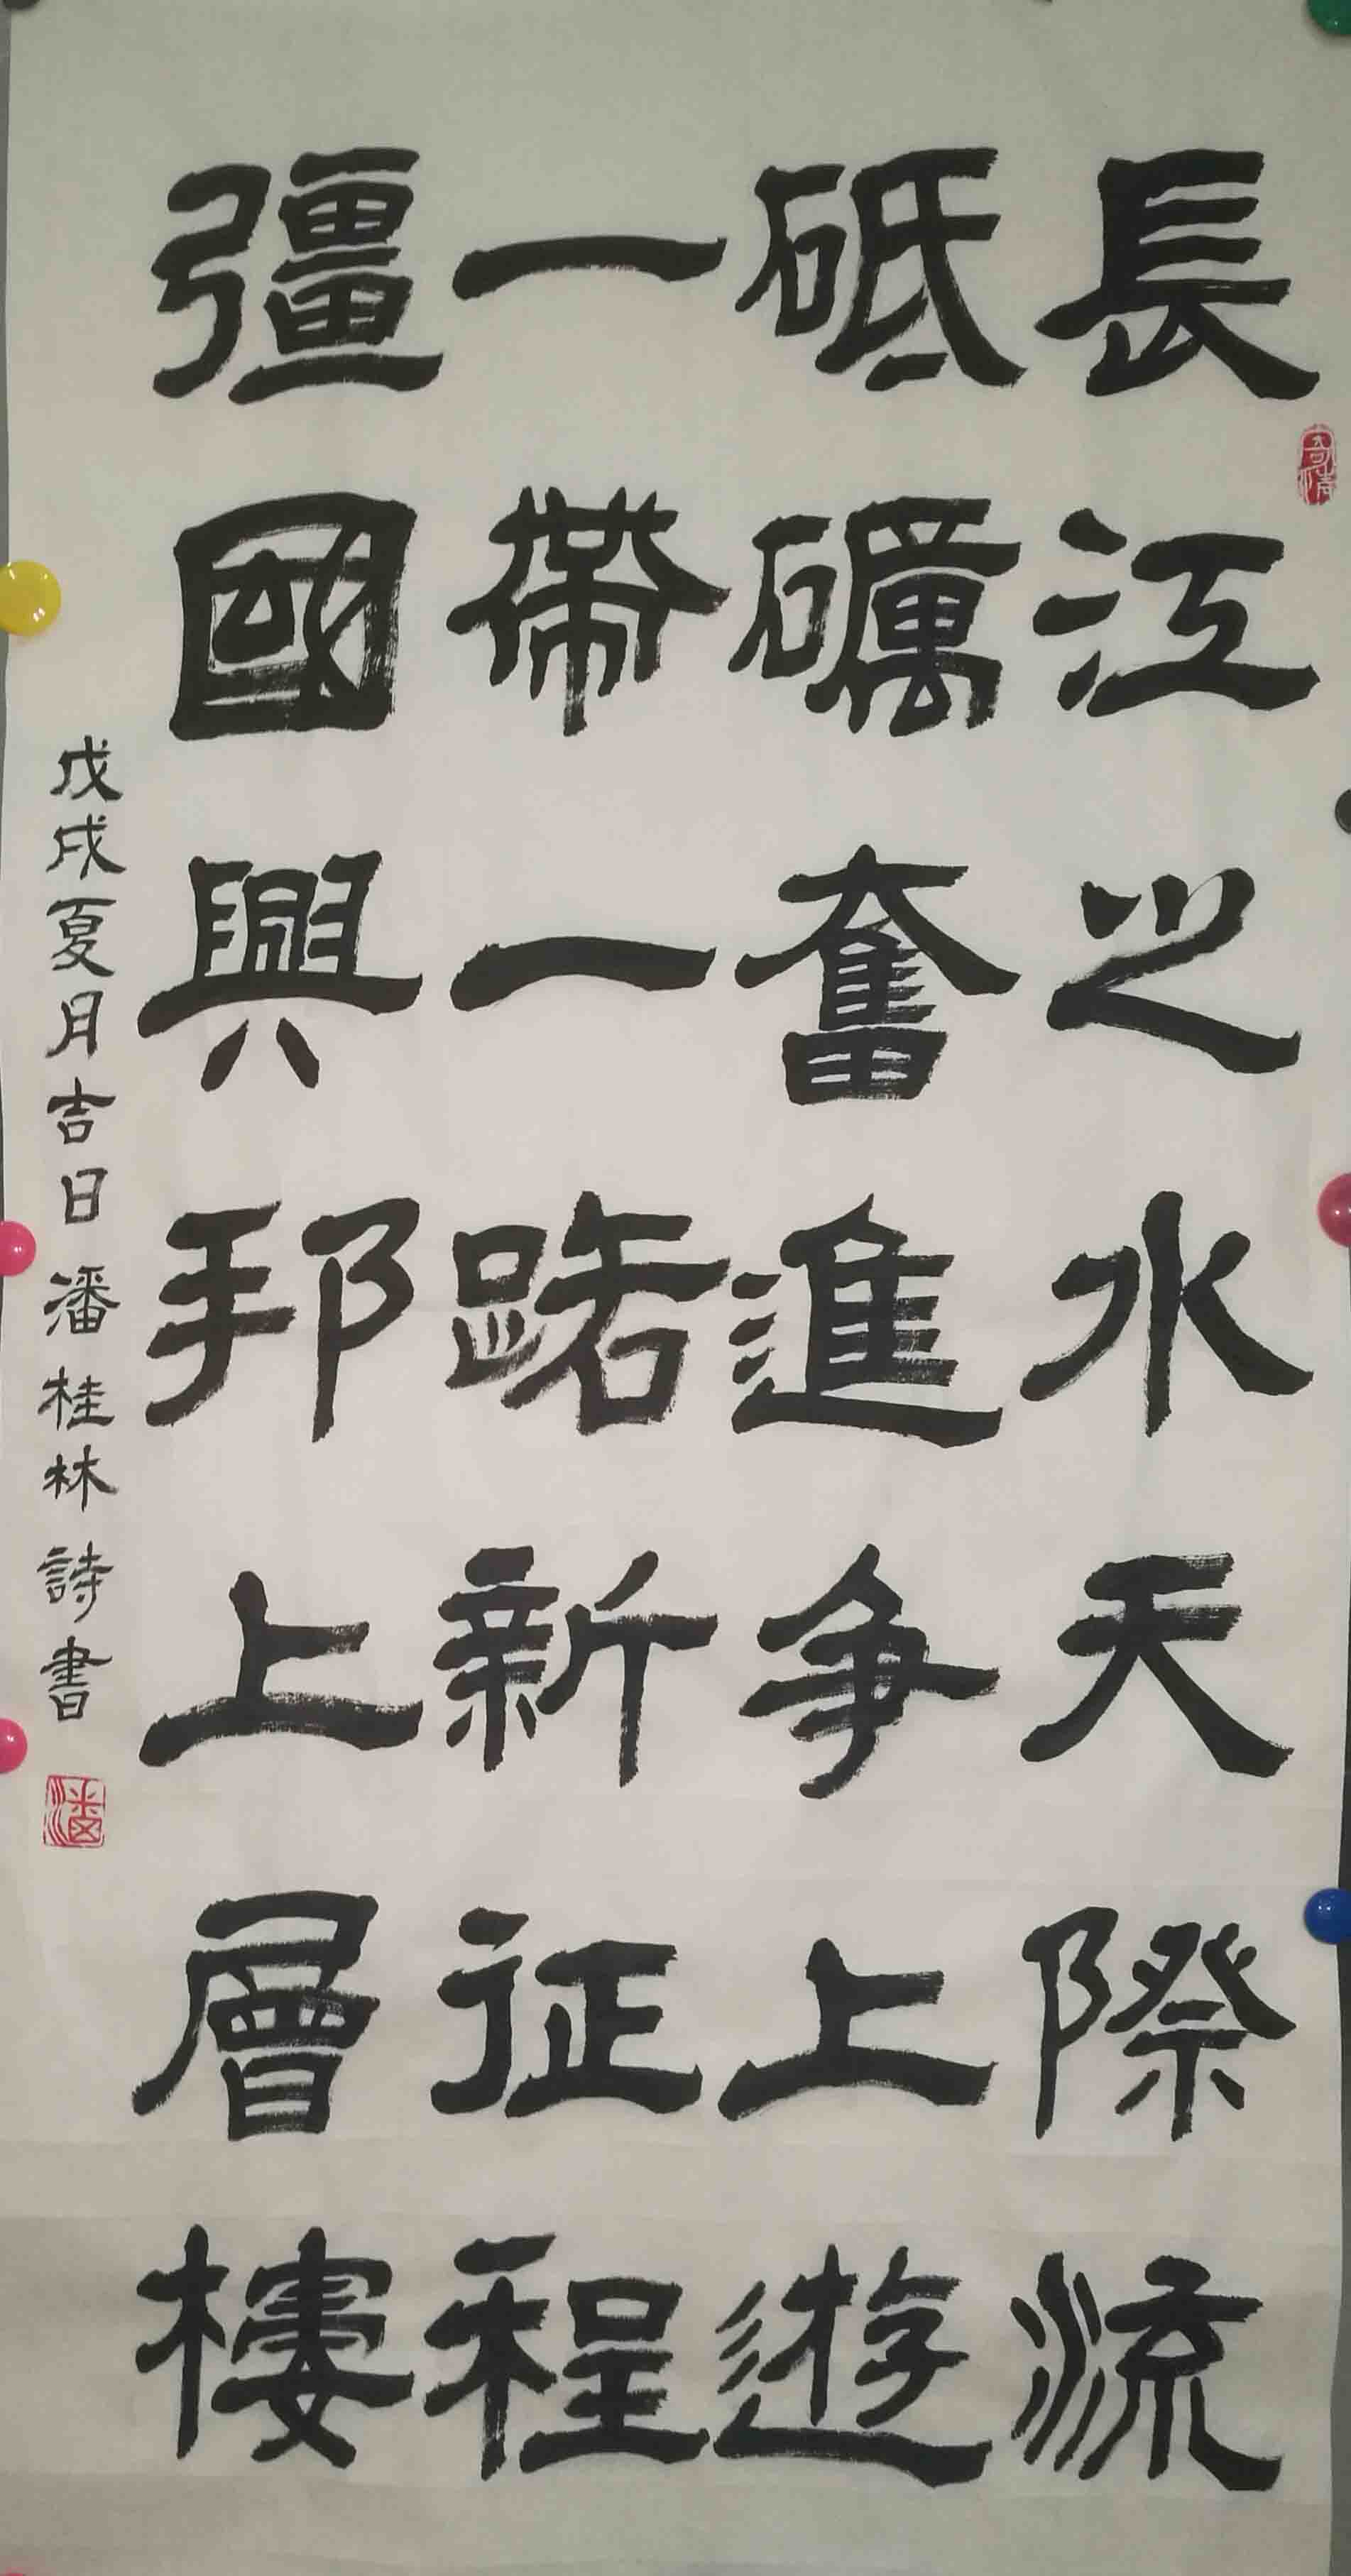 長江之水天際流
砥礪奮進争上遊
一帶一路新征程
彊國興邦上層樓
戊戌夏月吉日潘桂林詩書
潘